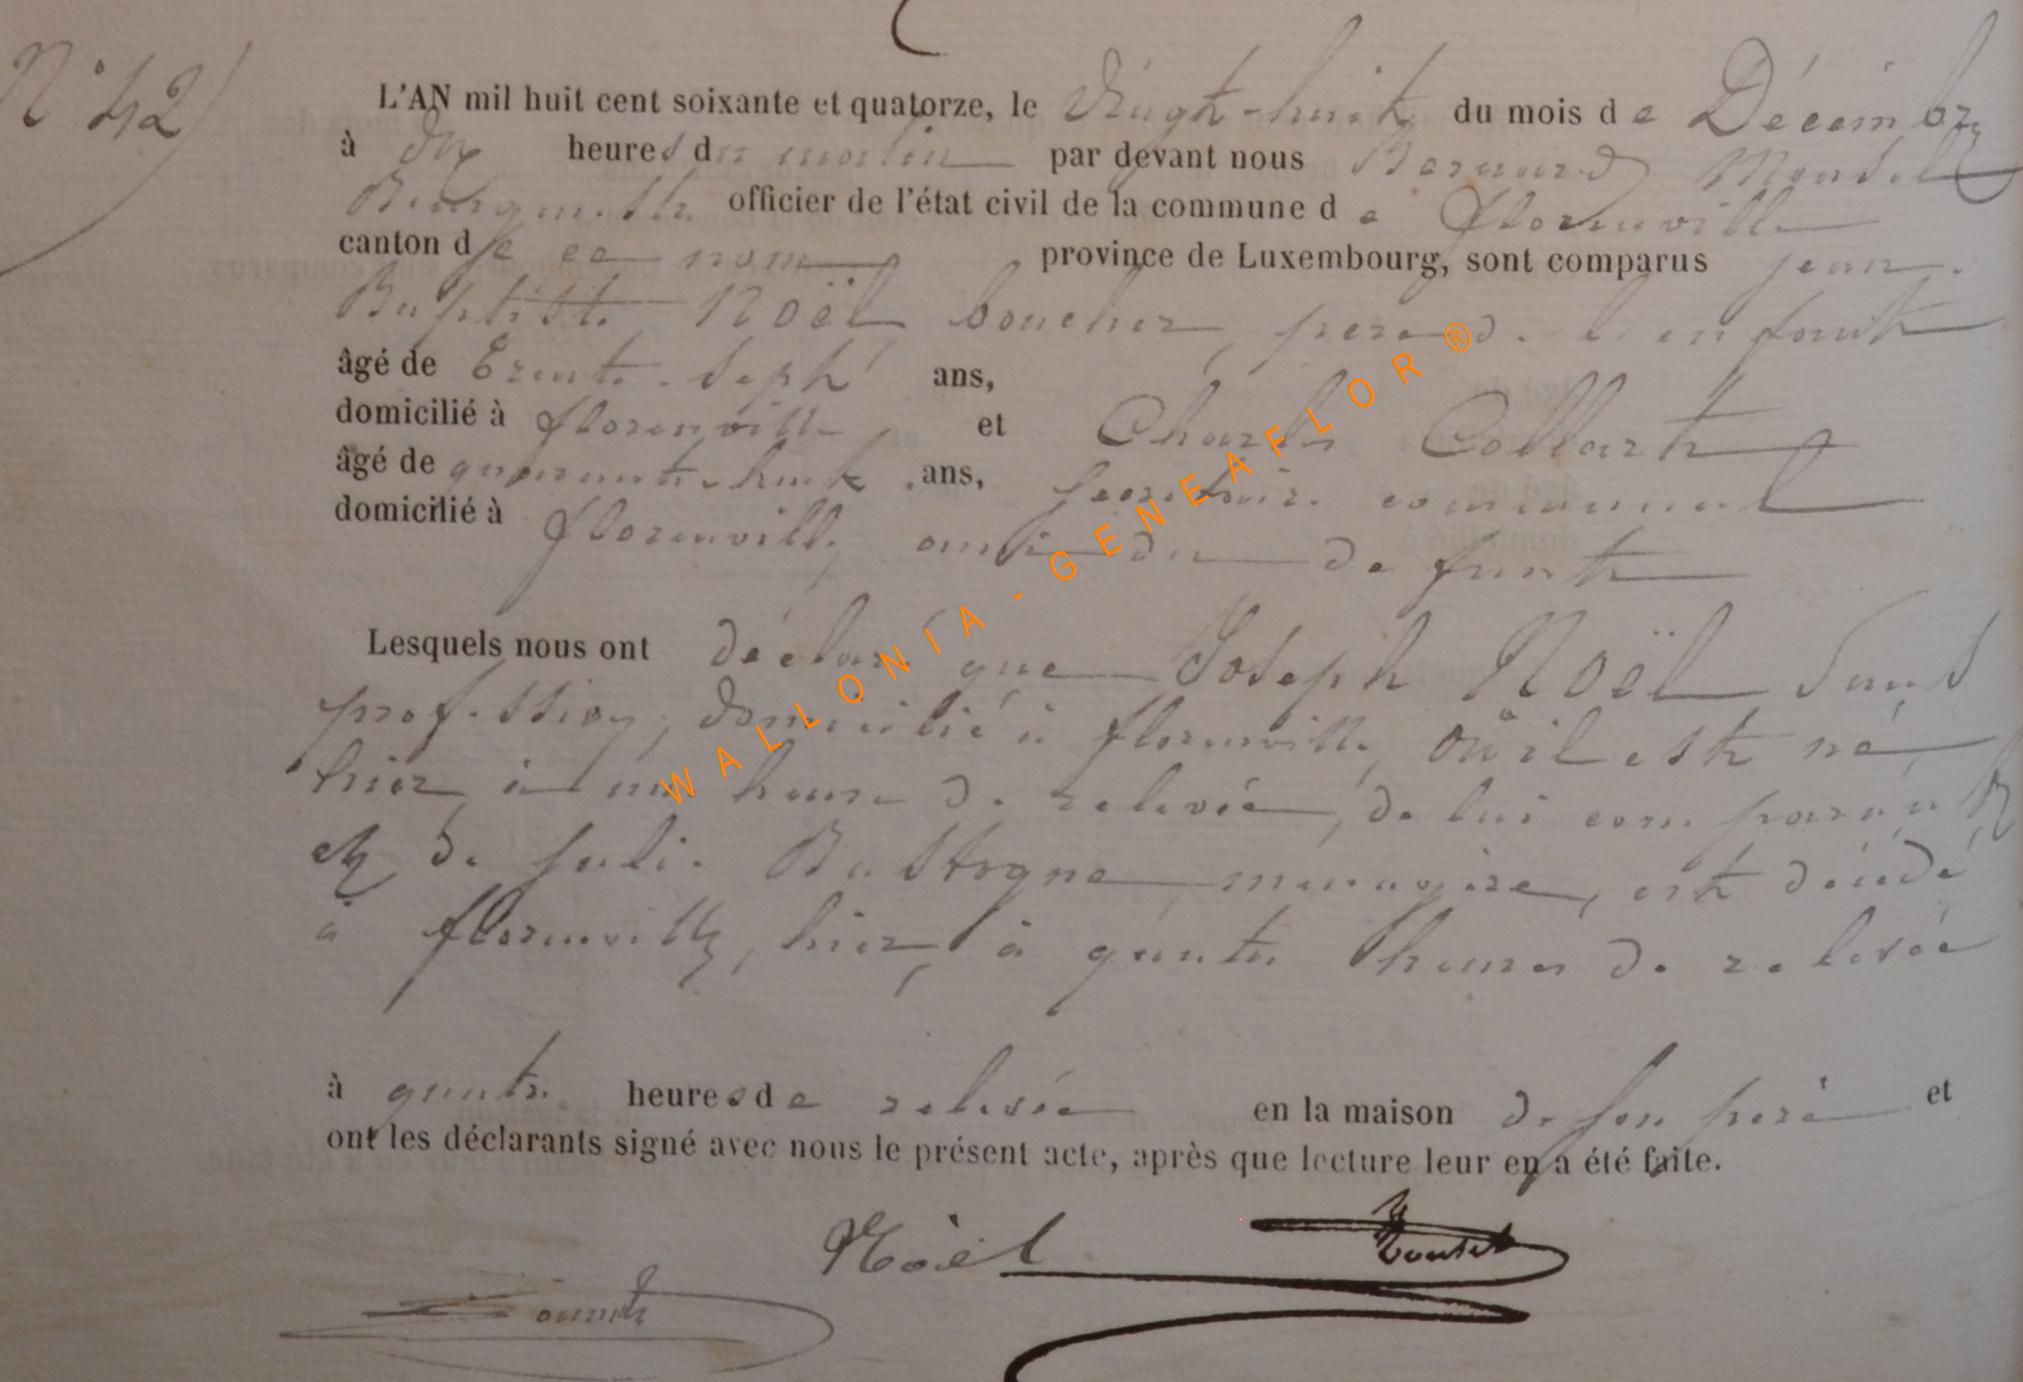 N° 42
L'AN mil huit cent soixante et quatorze, le Vingt-huit du mois de Décembre
à dix heures du matin par devant nous Bernard
Bourgmestre officier de l'état civil de la commune de Florenville
canton de ce nom province de Luxembourg, sont comparus Jean-
Baptiste Noël boucher, père de l'enfant
âgé de trente-sept ans,
domicilié à Florenville et Charles Collart
âgé de quarante-huit ans, secrétaire communal
domicilié à Florenville, ami du defunt
Lesquels nous ont déclaré que Joseph Noël sans
profession, domicilié à Florenville, où il est né
hier à une heure de relevée, de lui comparant
et de Julie Bastogne ménagère, est décédé
à Florenville, hier, à quatre heures de relevée
à quatre heures de relevée en la maison de son père et
ont les déclarants signé avec nous le présent acte, après que lecture leur en a été faite.
Noël
WALLONIA - GENEAFLOR ®